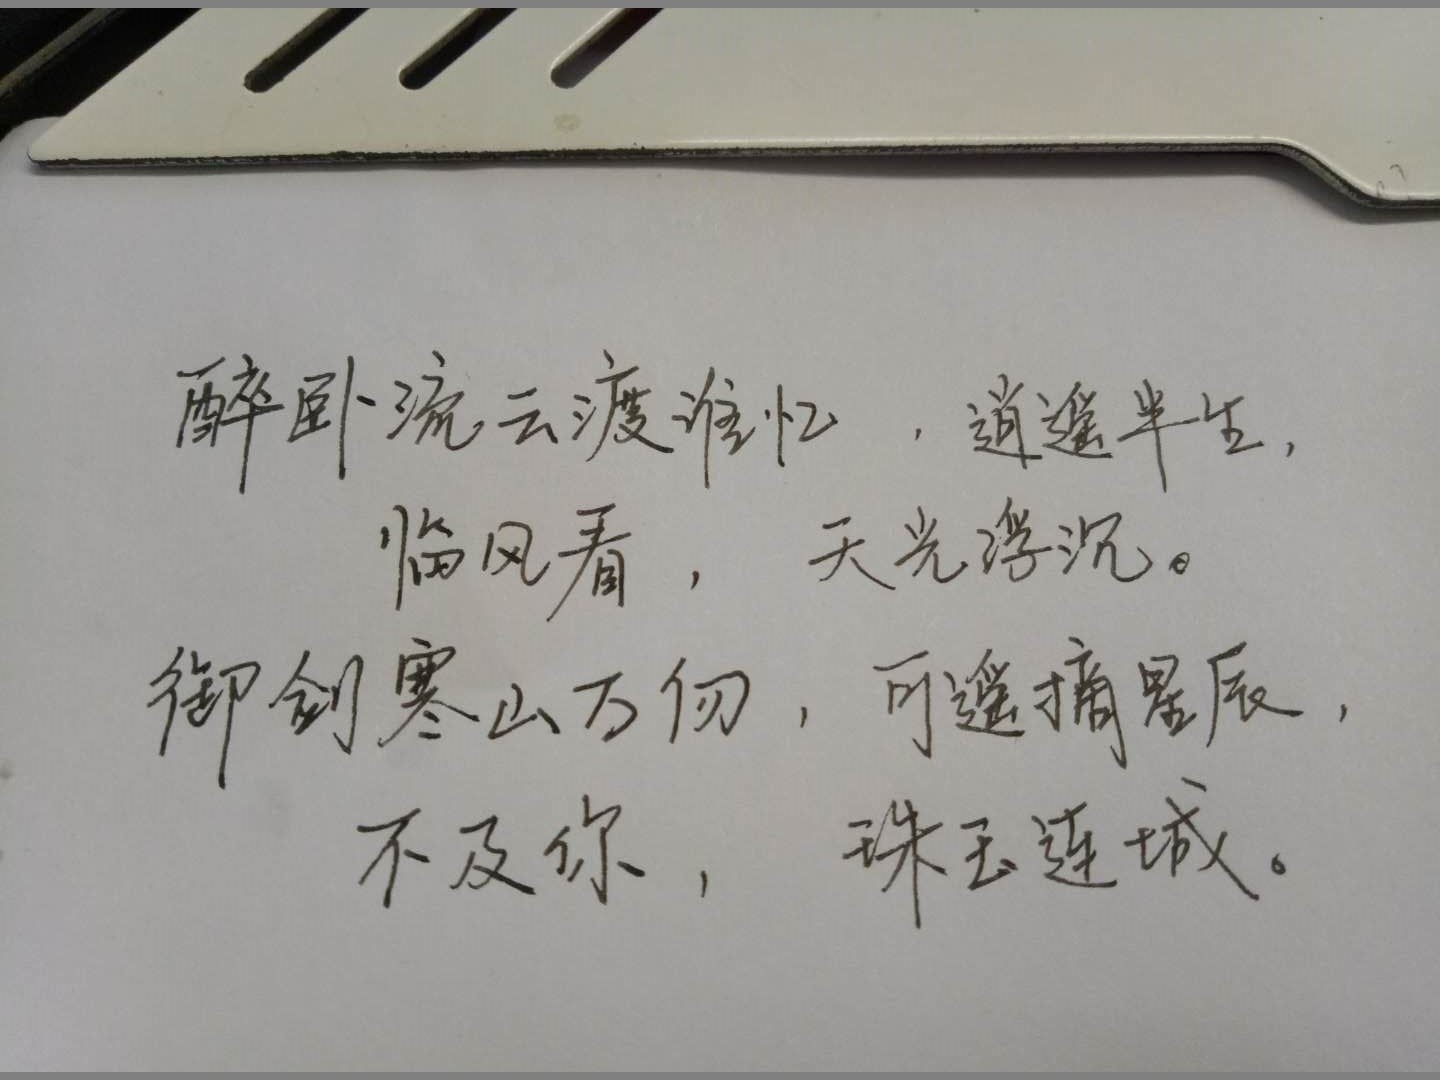 醉卧流云渡谁忆，逍遥半生，
临风看，天光浮沉。
御剑寒山万仞，可遥摘星辰，
不及你，珠玉连城。